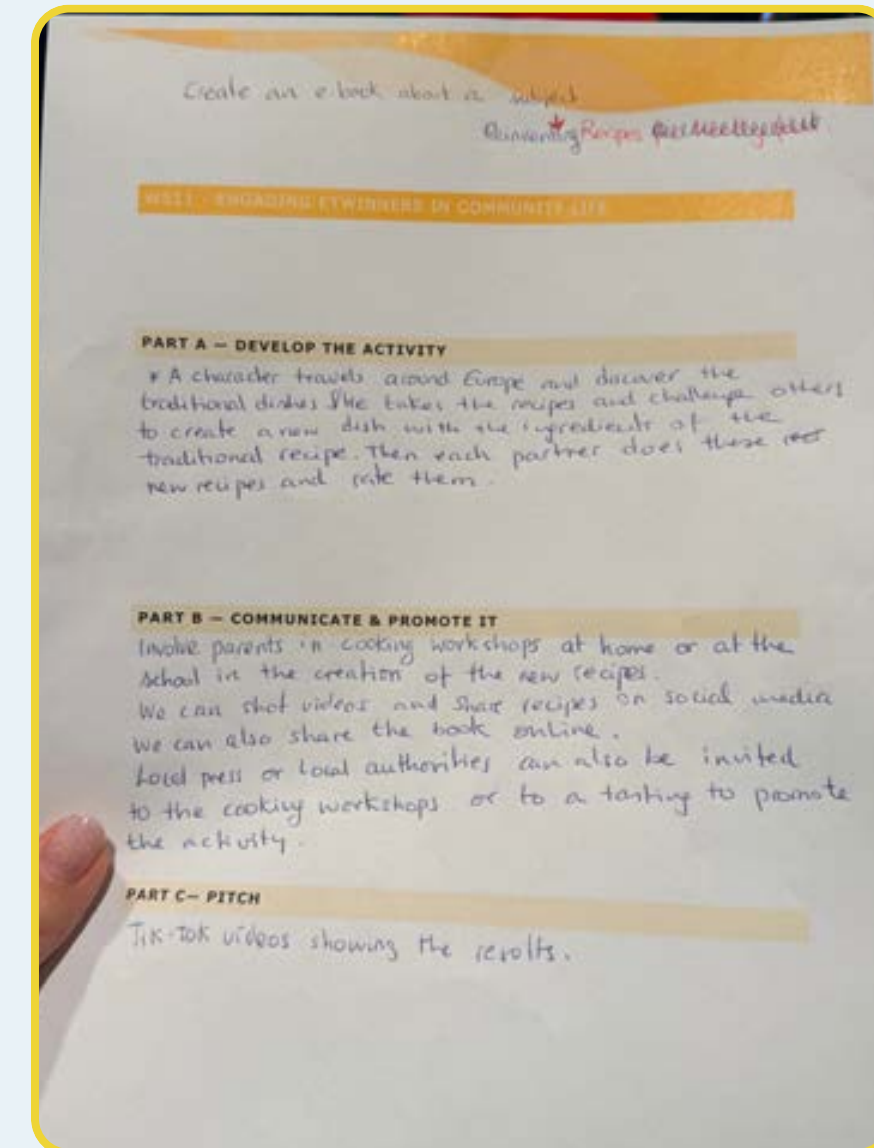 Create an e-book about a subject
Reinventing Recipes
WS11 - ENGAGING ETWINNERS IN COMMUNITY LIFE
PART A – DEVELOP THE ACTIVITY
* A character travels around Europe and discover the
traditional dishes. She takes the recipes and challenge others
to create a new dish with the ingredients of the
traditional recipe. Then each partner does these
new recipes and rate them.
PART B – COMMUNICATE & PROMOTE IT
Involve parents in cooking workshops at home or at the
school in the creation of the new recipes.
We can shot videos and share recipes on social media
we can also share the book online.
Local press or local authorities can also be invited
to the cooking workshops or to a tasting to promote
the activity.
PART C– PITCH
Tik-Tok videos showing the results.